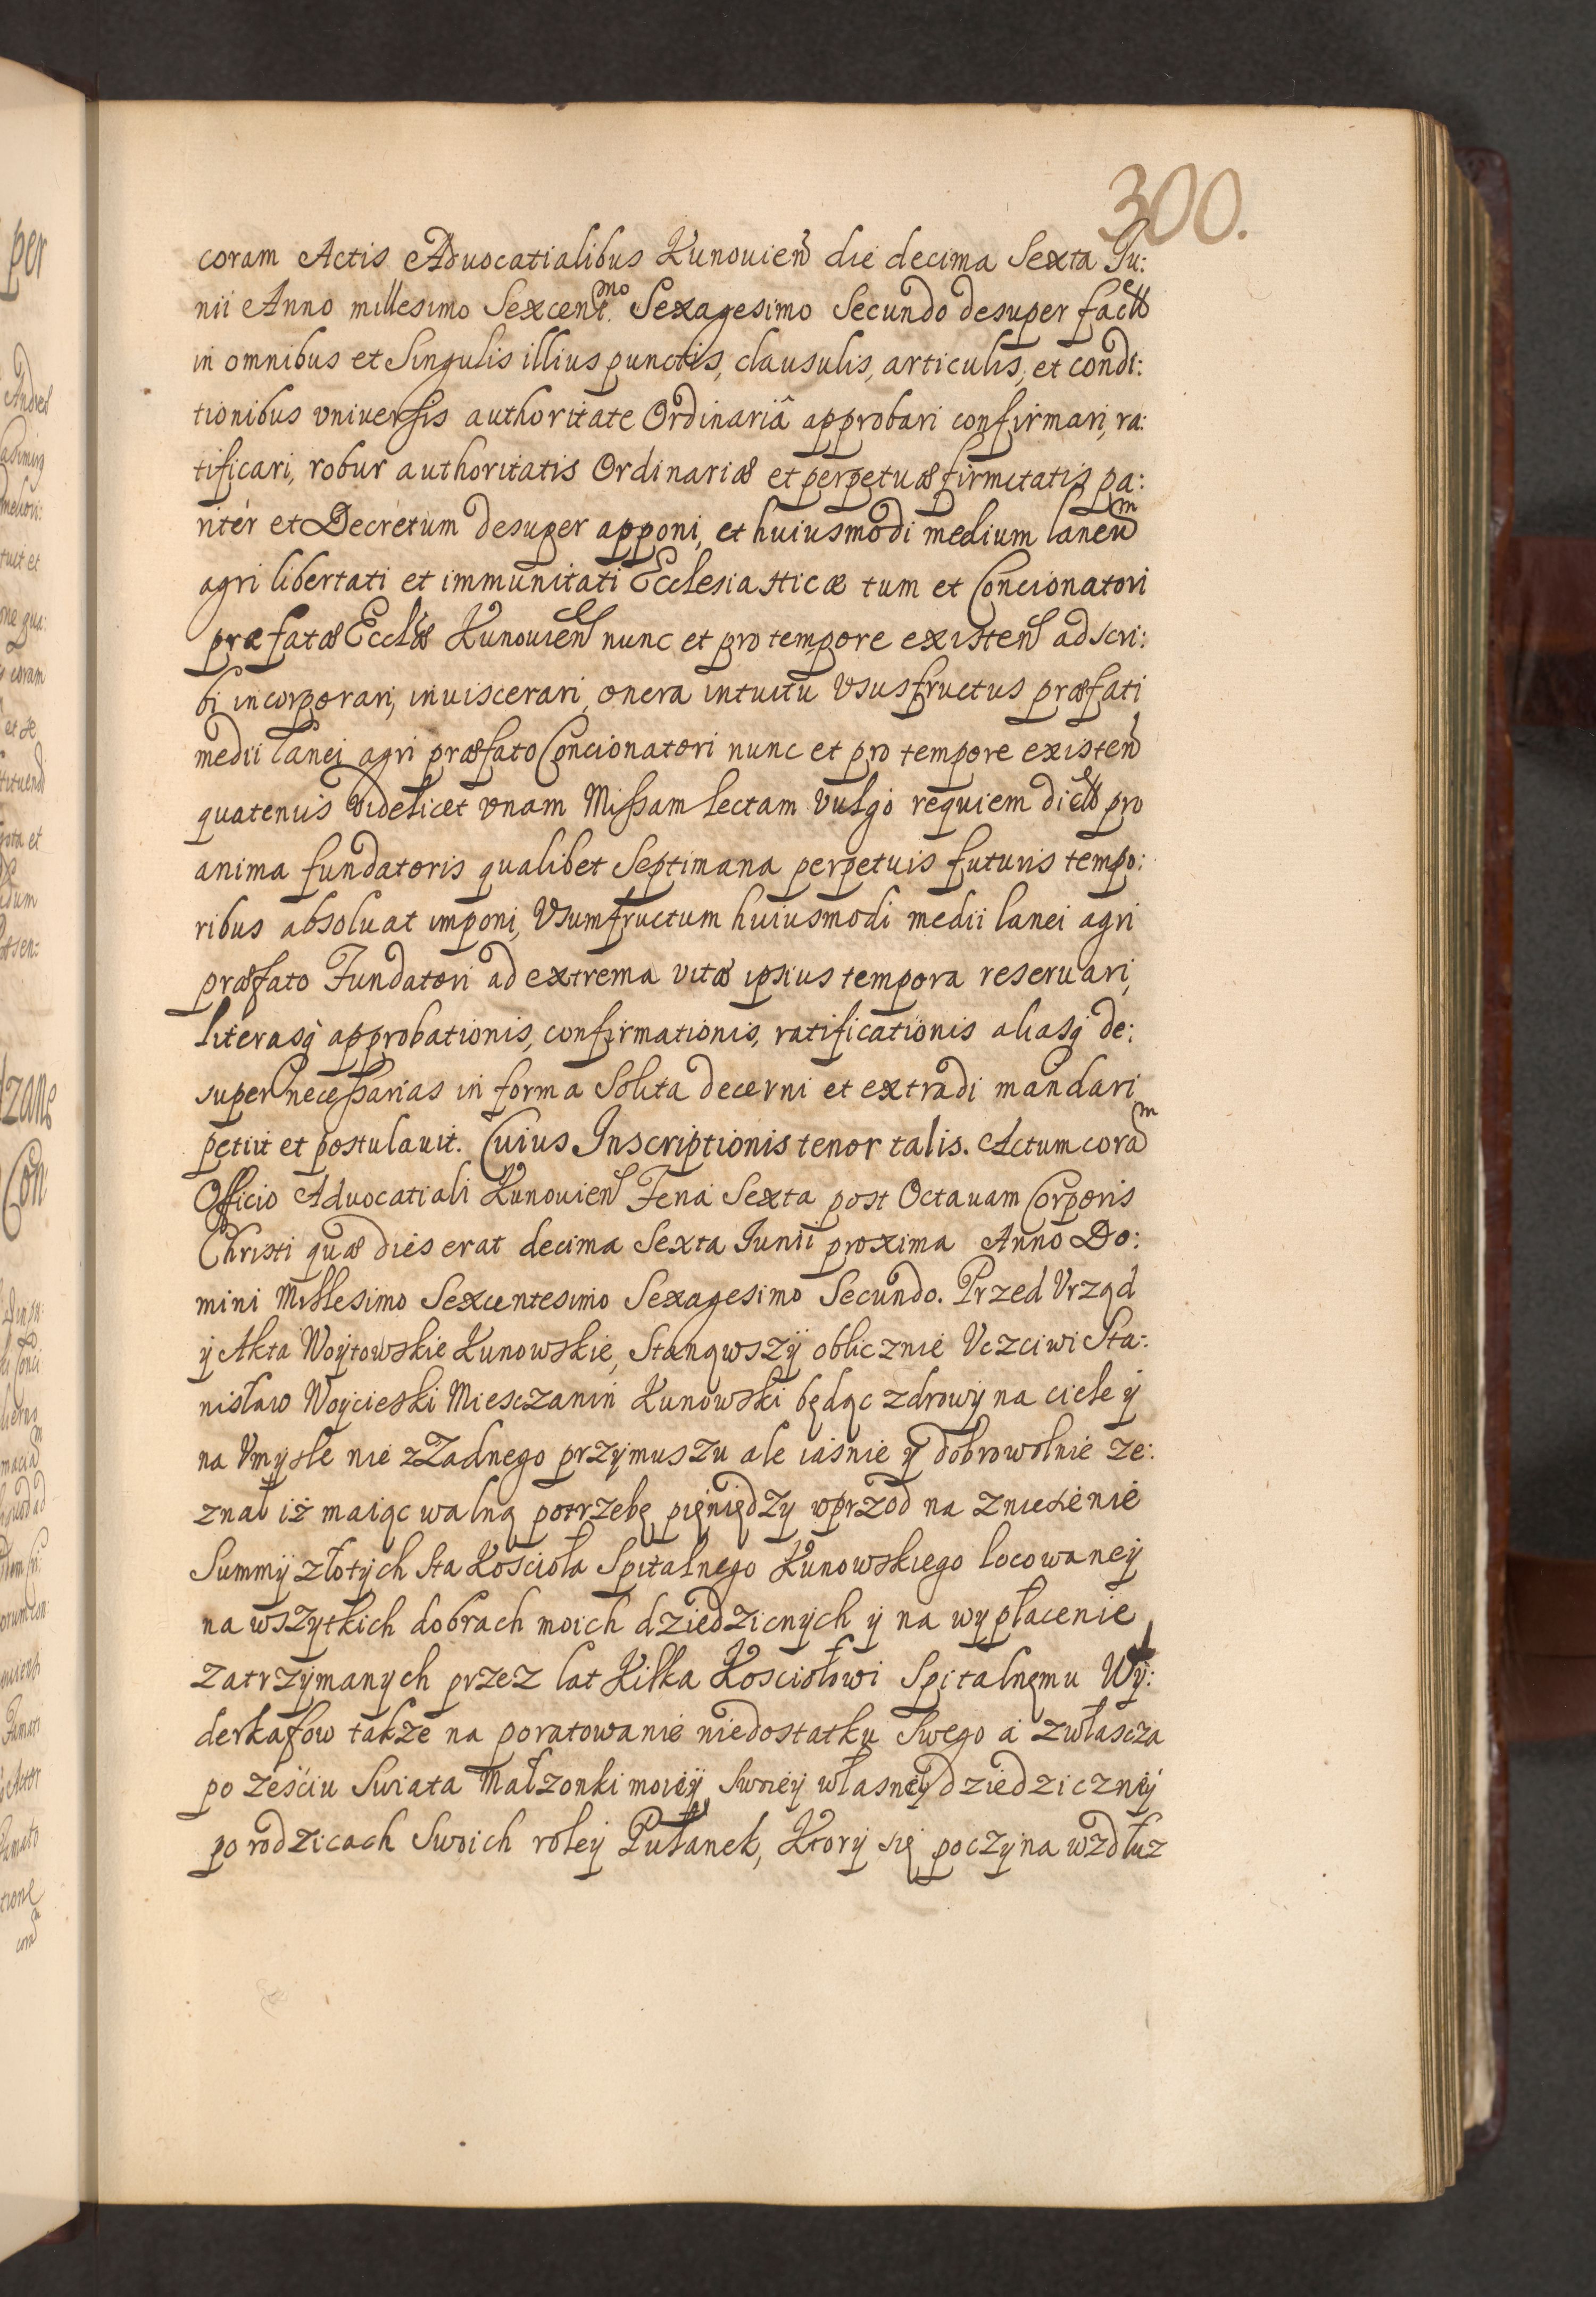 300.
coram Actis Aduocatialibus Kunouien̄ die decima Sexta Ju:
nii Anno millesimo Sexcent.mo Sexagesimo Secundo desuper fact
in omnibus et Singulis illius punctis, clausulis, articulis, et condi:
tionibus vniuersis authoritate Ordinariâ approbari confirmari, ra:
tificari, robur authoritatis Ordinariæ et perpetuæ firmitatis pa:
riter et Decretum desuper apponi, et huiusmodi medium laneum
agri libertati et immunitati Ecclesiasticæ tum et Concionatori
præfatæ Ecclæ Kunouien nunc et pro tempore existen adscri:
bi incorporari, inuiscerari, onera intuitu Vsusfructus præfati
medii lanei agri præfato Concionatori nunc et pro tempore existen
quatenus videlicet vnam Missam lectam vulgo requiem dict pro
anima fundatoris qualibet Septimana perpetuis futuris tempo:
ribus absoluat imponi, Vsumfructum huiusmodi medii lanei agri
præfato Fundatori ad extrema vitæ ipsius tempora reseruari,
literasq approbationis, confirmationis, ratificationis aliasq de:
super necessarias in forma Solita decerni et extradi mandari
petiit et postulauit. Cuius Inscriptionis tenor talis. Actum coram
Officio Aduocatiali Kunouien Feria Sexta post Octauam Corporis
Christi quæ dies erat decima Sexta Junii proxima Anno Do:
mini Millesimo Sexcentesimo Sexagesimo Secundo. Przed Vrząd
ÿ Akta Woÿtowskie Kunowskie, Stanąwszÿ oblicznie Vczciwi Sta:
nisław Woÿcieski Miesczanin Kunowski będąc zdrowÿ na ciele ÿ
na Vmÿsle nie z Zadnego przÿmuszu ale iasnie ÿ dobrowolnie ze:
znał iż maiąc walną potrzebę pięniędzy wprzod na zniesienie
Summÿ złotÿch Sta Koscioła Spitalnego Kunowskiego locowaneÿ
na wszÿtkich dobrach moich dziedzicnÿch ÿ na wÿpłacenie
zatrzÿmanÿch przez lat Kilka Kosciołowi Spitalnęmu Wÿ:
derkafow takze na poratowanie niedostatku Swego a zwłascza
po ześciu Swiata Małzonki moieÿ, Swoieÿ własneÿ dziedziczneÿ
po rodzicach Swoich roleÿ Pułanek, Ktorÿ się poczÿna wzdłuz